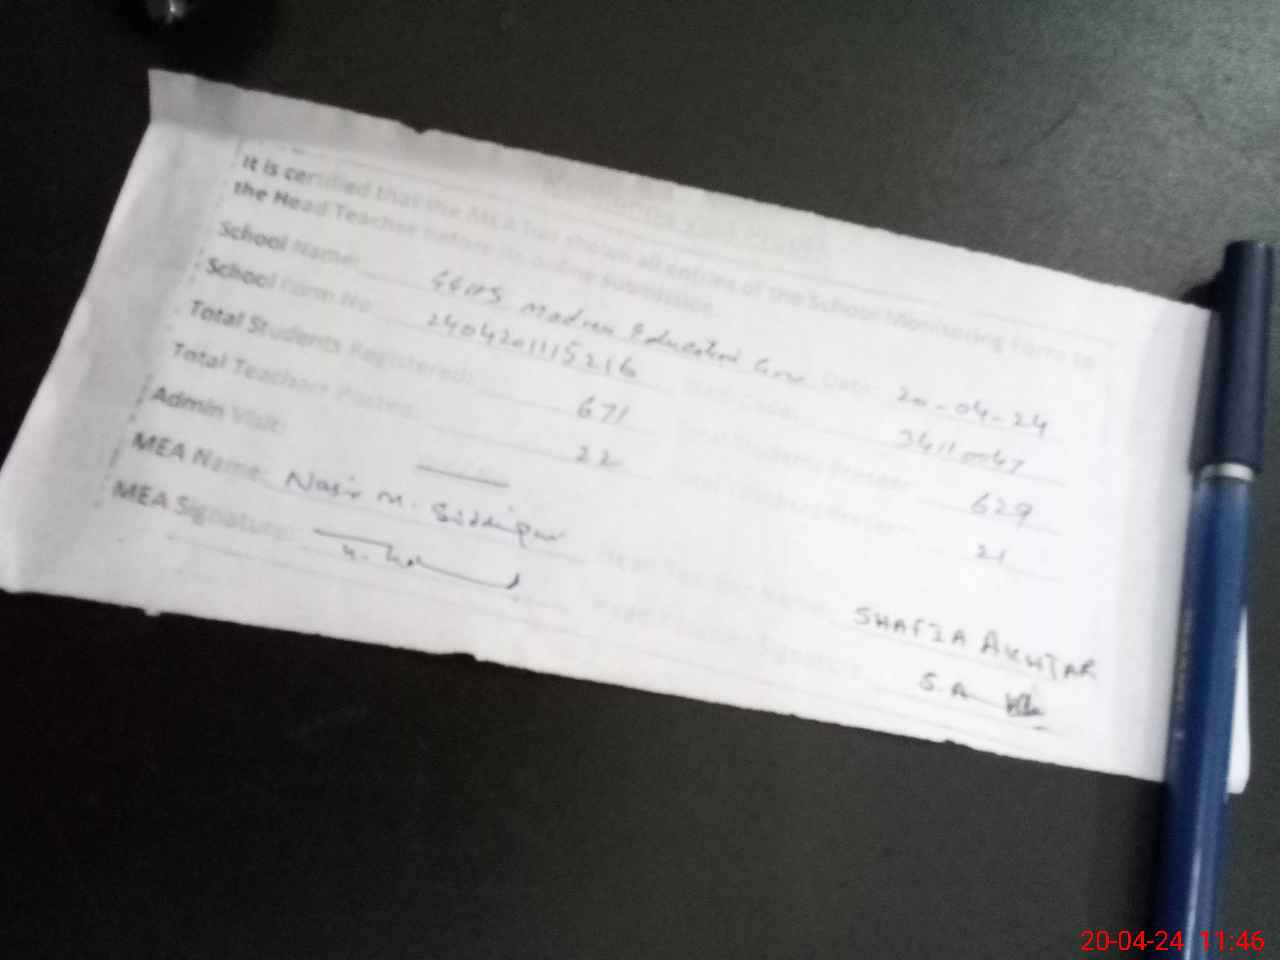 It is certified that the MEA has shown all entries of the School Monitoring Form to
the Head Teacher before its online submission.
School Name: Madrsa Education Date: 20-04-24
School Form No 2404201115216
Total Students Registered: 671 Total Students Present: 629
Total Teachers Posted: 22 Total Teachers Present: 21
Admin Visit:
MEA Name: Nasir M. Head Teacher Name: SHAFIA AKHTAR
MEA Signature: Head Teacher Signature: S.A
20-04-24 11:46